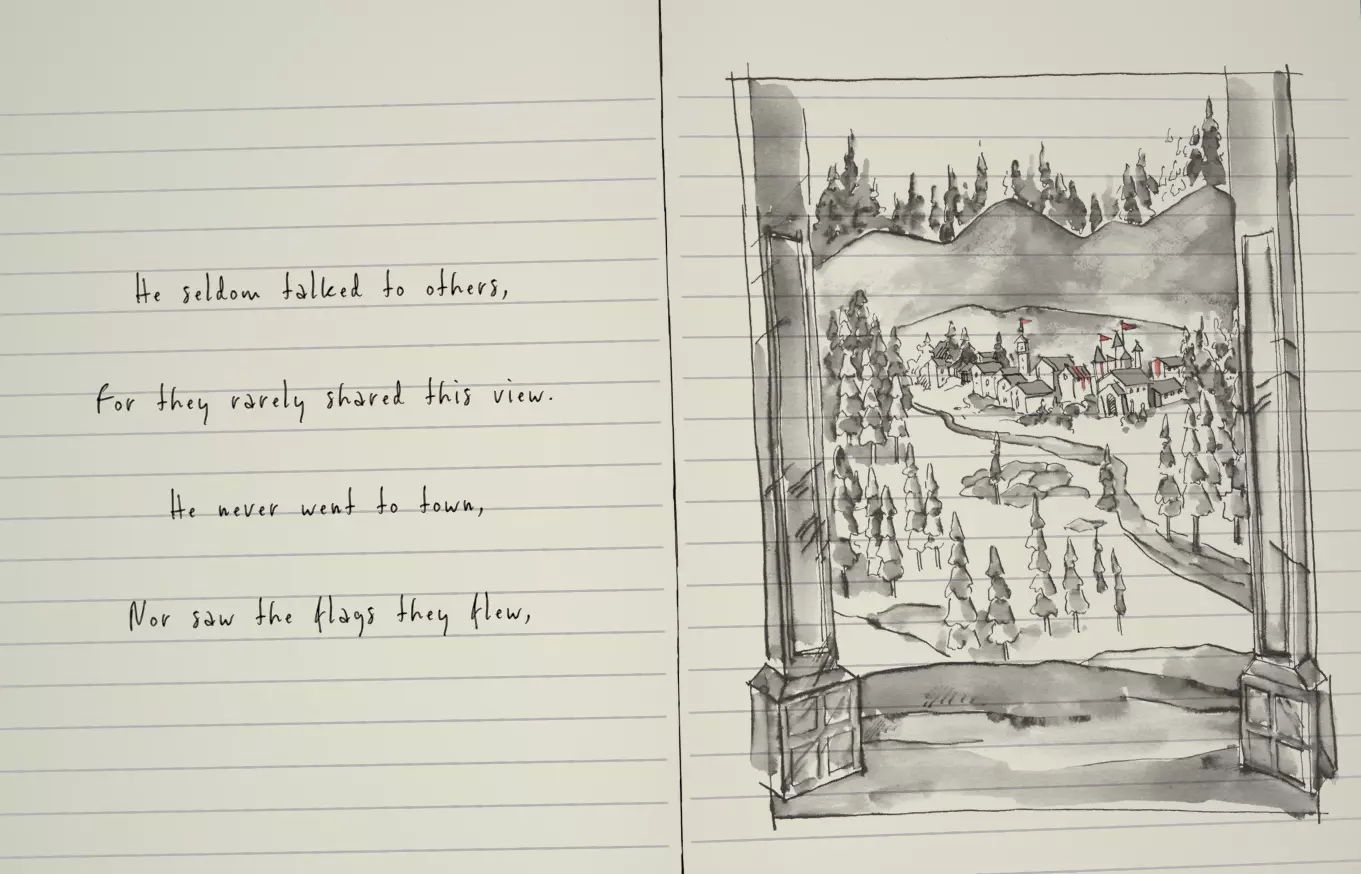 He seldom talked to others,
For they rarely shared this view.
He never went to town,
Nor saw the flags they flew,